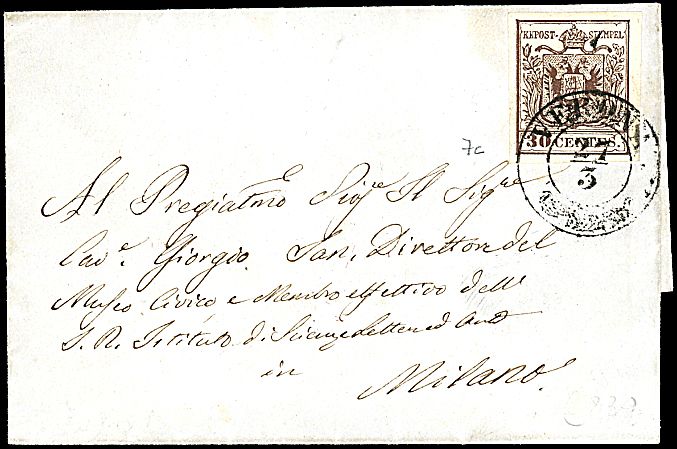 KKPOST-STEMPEL
30 CENTES.
VERONA
27
3
7c
Al Pregiatmo Sigre Il Sigre
Cave. Giorgio Jan, Direttore del
Museo Civico e Membro effettivo dell'
I. R. Istituto di Scienze Lettere ed Arti
in
Milano.